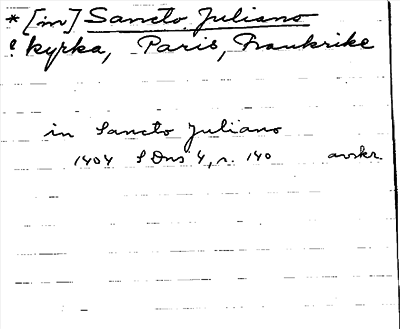 * [in] Sancto Juliano
? kyrka, Paris, Frankrike
in Sancto Juliano
1404 SDns 4, n. 140 avskr.